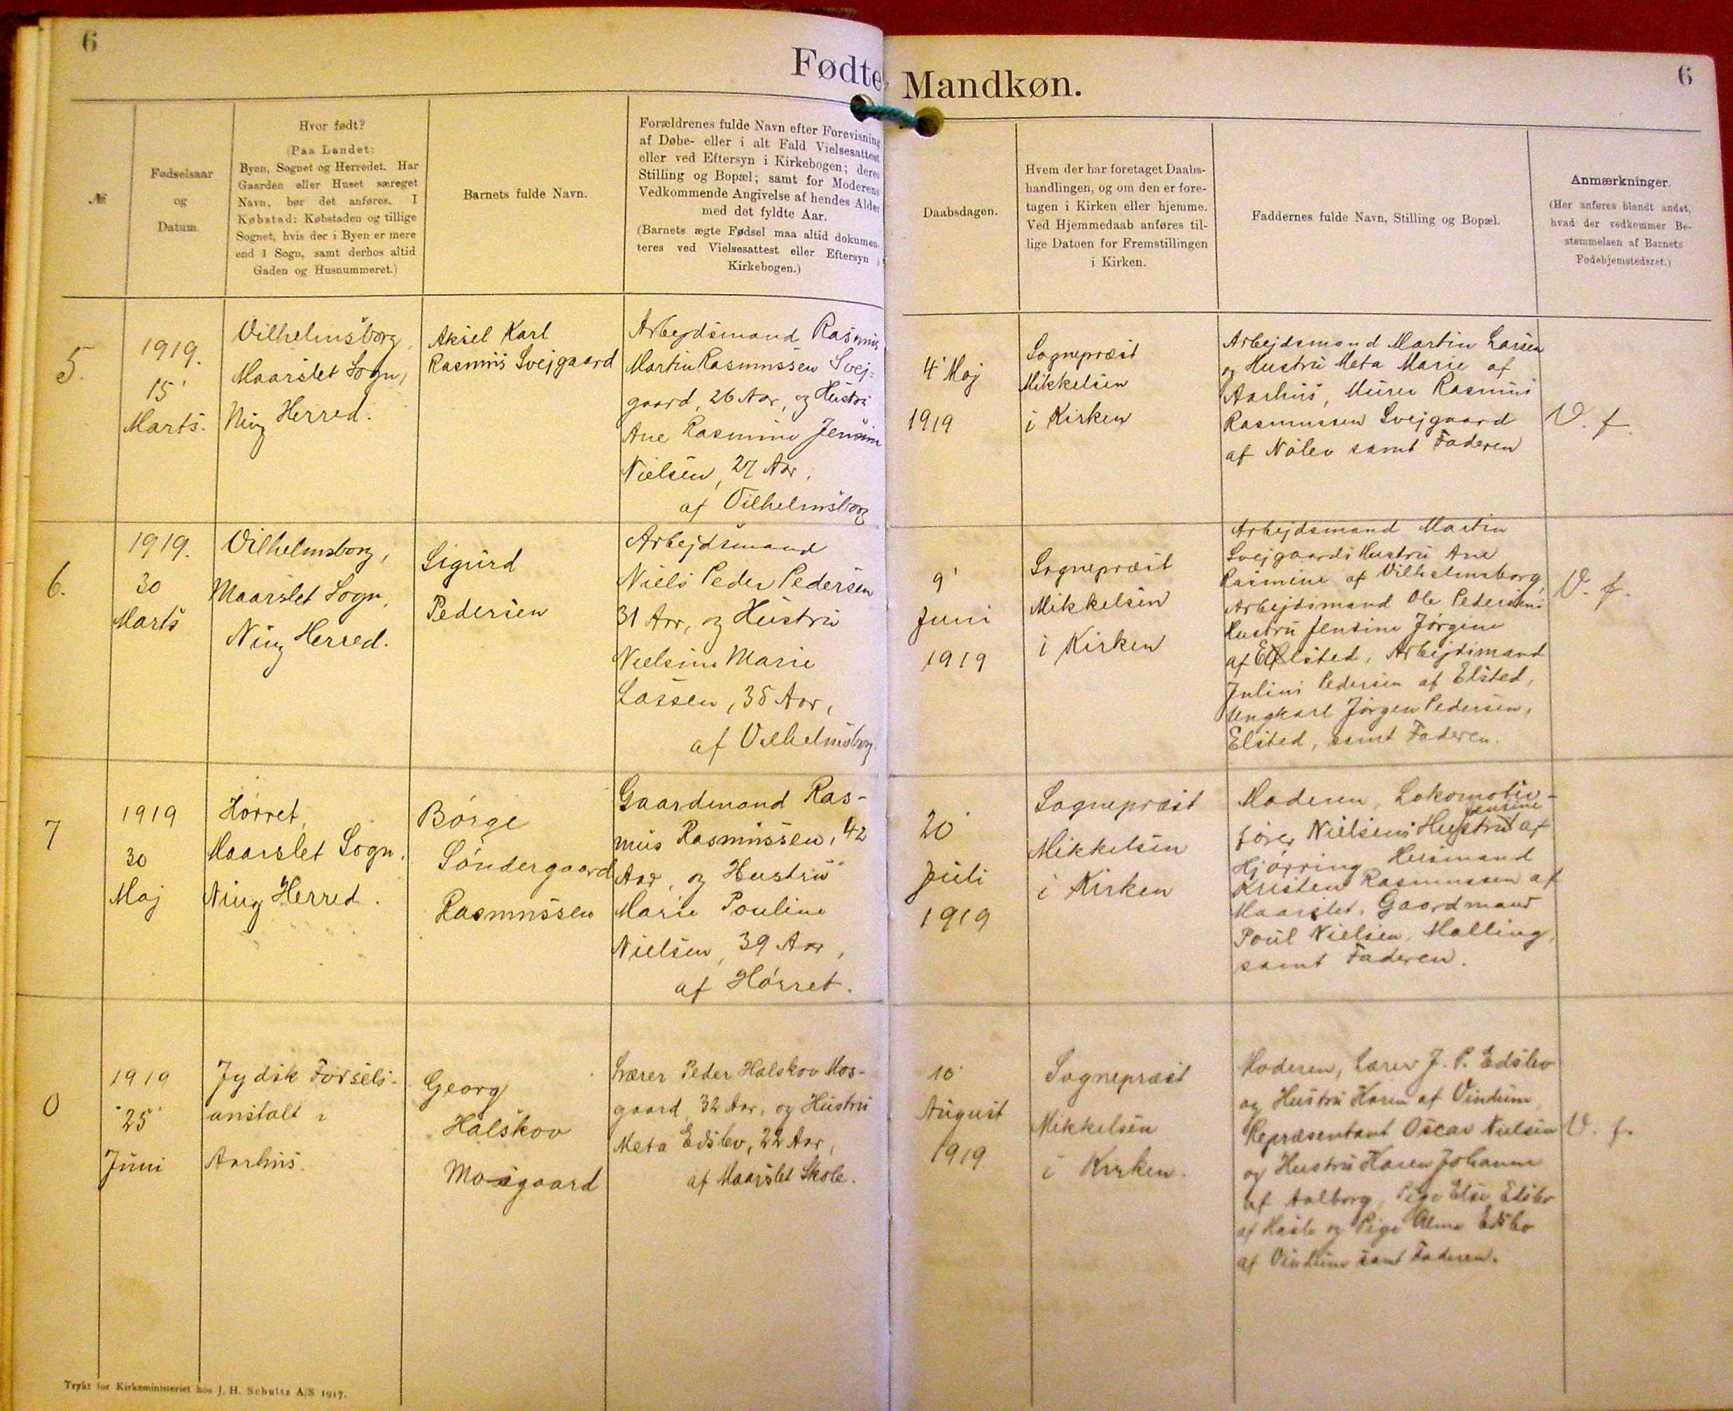 6
Fødte
Mandkøn.
6
№
Fødselsaar
og
Datum
Hvor født?
(Paa Landet:
Byen, Sognet og Herredet. Har
Gaarden eller Huset særeget
Navn, bør det anføres. I
Købstad: Købstaden og tillige
Sognet, hvis der i Byen er mere
end 1 Sogn, samt derhos altid
Gaden og Husnummeret.)
Barnets fulde Navn.
Forældrenes fulde Navn efter Forevisning
af Døbe- eller i alt Fald Vielsesattest
eller ved Eftersyn i Kirkebogen; deres
Stilling og Bopæl; samt for Moderens
Vedkommende Angivelse af hendes Alder
med det fyldte Aar.
(Barnets ægte Fødsel maa altid dokumen-
teres ved Vielsesattest eller Eftersyn i
Kirkebogen.)
Daabsdagen.
Hvem der har foretaget Daabs-
handlingen, og om den er fore-
tagen i Kirken eller hjemme.
Ved Hjemmedaab anføres til-
lige Datoen for Fremstillingen
i Kirken.
Faddernes fulde Navn, Stilling og Bopæl.
Anmærkninger.
(Her anføres blandt andet,
hvad der vedkommer Be-
stemmelsen af Barnets
Fødehjemstedsret.)
5.
1919.
15'
Marts.
Vilhelmsborg,
Maarslet Sogn,
Ning Herred.
Aksel Karl
Rasmus Svejgaard
Arbejdsmand Rasmus
Martin Rasmussen Svej-
gaard, 26 Aar, og Hustru
Ane Rasmine Jensine
Nielsen, 27 Aar,
af Vilhelmsborg
4' Maj
1919
Sognepræst
Mikkelsen
i Kirken
Arbejdsmand Martin Larsen
og Hustru Meta Marie af
Aarhus, Murer Rasmus
Rasmussen Svejgaard
af Nölev samt Faderen
V. f.
6.
1919.
30
Marts
Vilhelmsborg,
Maarslet Sogn,
Ning Herred.
Sigurd
Pedersen
Arbejdsmand
Niels Peder Pedersen
31 Aar, og Hustru
Nielsine Marie
Lassen, 38 Aar,
af Vilhelmsborg
9'
Juni
1919
Sognepræst
Mikkelsen
i Kirken
Arbejdsmand Martin
Svejgaards Hustru Ane
Rasmine af Vilhelmsborg,
Arbejdsmand Ole Pedersens
Hustru Jensine Jørgine
af Elsted, Arbejdsmand
Julius Pedersen af Elsted,
Ungkarl Jørgen Pedersen,
Elsted, samt Faderen.
V. f.
7
1919
30
Maj
Hørret,
Maarslet Sogn,
Ning Herred.
Börge
Söndergaard
Rasmussen
Gaardmand Ras-
mus Rasmussen, 42
Aar, og Hustru
Marie Pouline
Nielsen, 39 Aar,
af Hørret.
20'
Juli
1919
Sognepræst
Mikkelsen
i Kirken
Moderen, Lokomotiv-
fører Nielsens Hustru Jensine af
Hjørring, Husmand
Kristen Rasmussen af
Maarslet, Gaardmand
Poul Nielsen, Malling,
samt Faderen.
1919
25'
Juni
Jydsk Fødsels-
anstalt i
Aarhus.
Georg
Halskov
Mosgaard
Lærer Peder Halskov Mos-
gaard, 32 Aar, og Hustru
Meta Edslev, 22 Aar,
af Maarslet Skole.
10'
August
1919
Sognepræst
Mikkelsen
i Kirken.
Moderen, Lærer J. P. Edslev
og Hustru Karen af Vindum,
Repræsentant Oscar Nielsen
og Hustru Karen Johanne
af Aalborg, Pige Else Edslev
af Hasle og Pige Alma Edslev
af Vindum samt Faderen.
V. f.
Trykt for Kirkeministeriet hos J. H. Schultz A/S 1917.